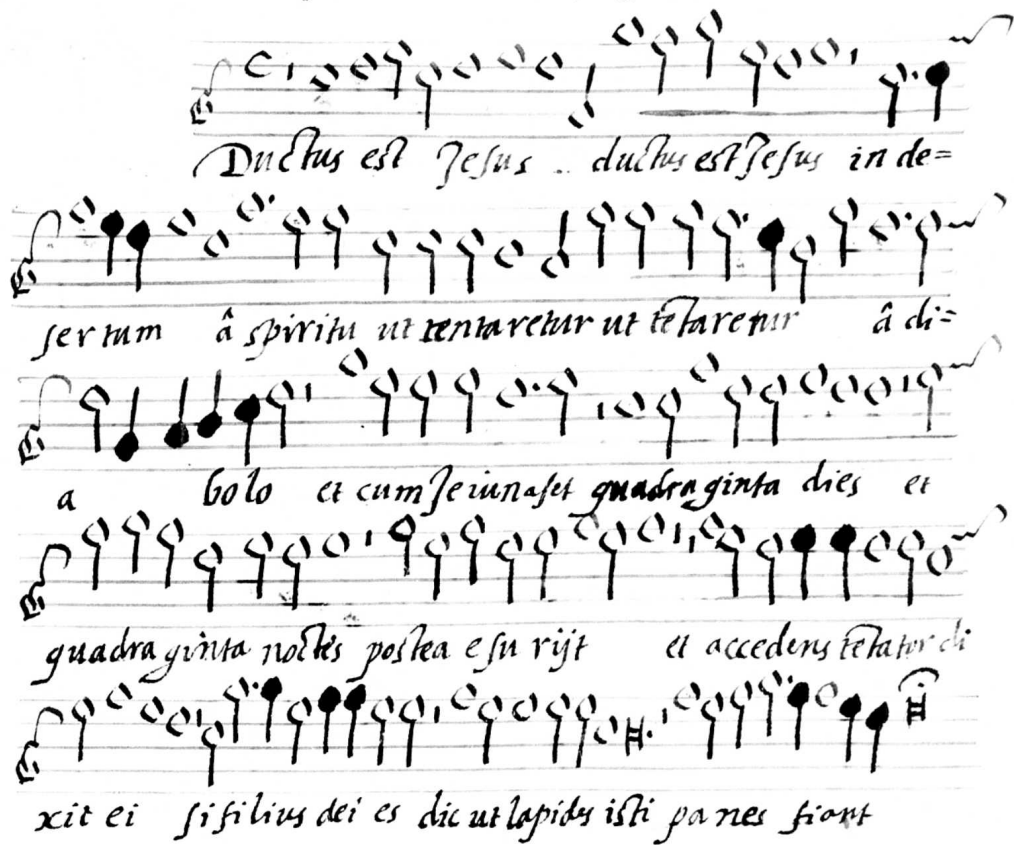 Ductus est Jesus .. ductus est Jesus in de=
sertum â spiritu ut tentaretur ut tẽtaretur â di=
a bolo et cum Jeiunaset quadraginta dies et
quadraginta noctes postea esurijt et accedens tẽtator di
xit ei si filius dei es dic ut lapides isti panes fiant